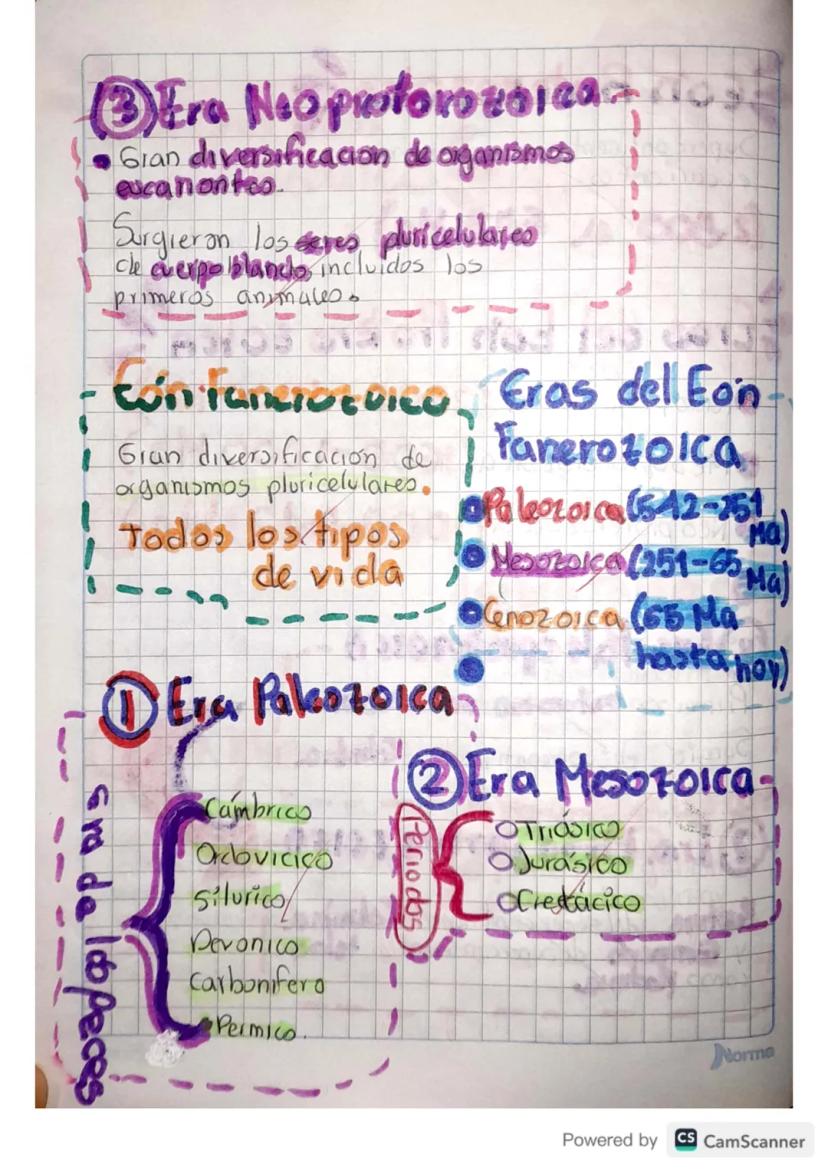 ③ Era Neoproterozoica
• Gran diversificacion de organismos
eucariontes.
Surgieron los seres pluricelulares
de cuerpo blando, incluidos los
primeros animales.
Eón Fanerozoico
Gran diversificacion de
organismos pluricelulares.
Todos los tipos
de vida
Eras del Eón
Fanerozoica
Paleozoica (542-251
Ma)
Mesozoica (251-65
Ma)
Cenozoica (65 Ma
hasta hoy)
① Era Paleozoica
Era de los peces
Cámbrico
Ordovicico
Silurico
Devonico
Carbonifero
Permico.
② Era Mesozoica
Periodos
Triásico
Jurásico
Cretácico
Norma
Powered by CS CamScanner